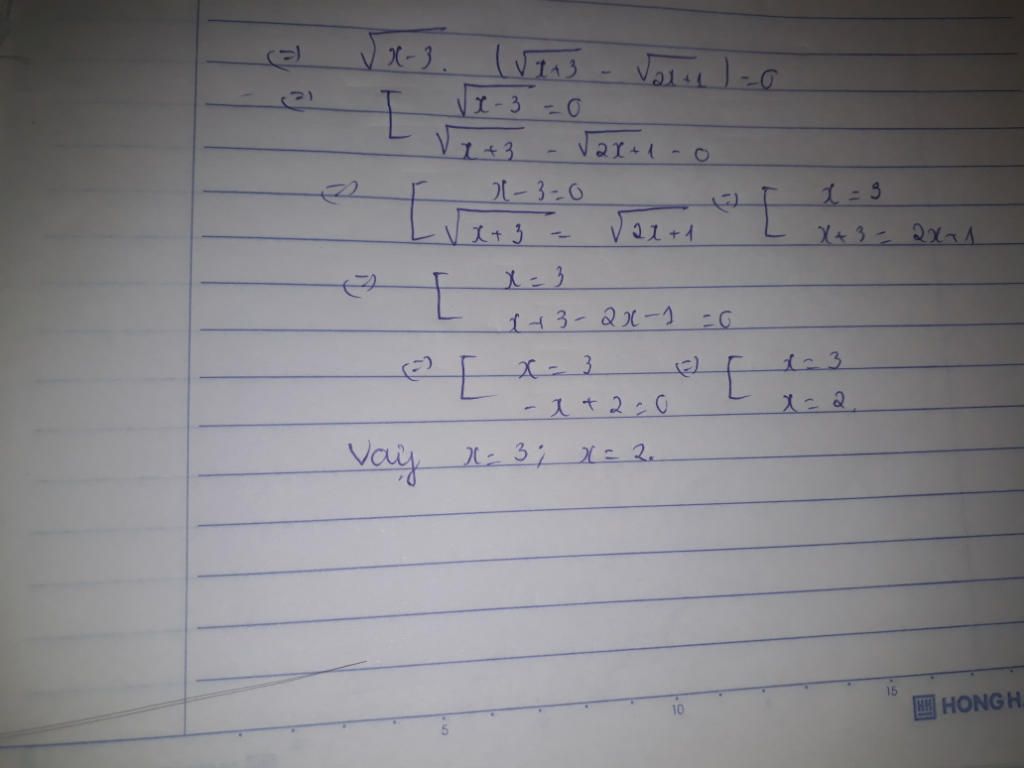 ⇔ √(x-3) . (√(x+3) - √(2x+1)) = 0
⇔ [ √(x-3) = 0
√(x+3) - √(2x+1) - 0
⇔ [ x-3=0 ⇔ [ x=3
√(x+3) = √(2x+1) x+3 = 2x+1
⇔ [ x=3
x+3-2x-1 =0
⇔ [ x=3 ⇔ [ x=3
-x+2=0 x=2.
Vậy x=3; x=2.
5 10 15
HONG HA